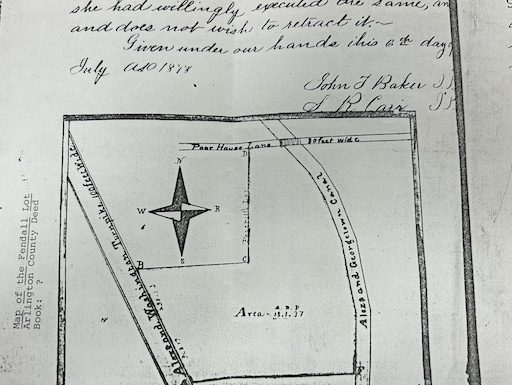 she had willingly executed the same, an
and does not wish to retract it.
Given under our hands this 6th day
July AD 1878
John T Baker J.P
S R Cair J P
Poor House Lane 30 feet wide
D
N
W
E
S
B
C
Alexa and Washington Turnpike 60 feet wide
Alexa and Georgetown Canal
A. R. P
Area - 13.1.37
Map of the Fendall Lot
Arlington County Deed
Book: ?